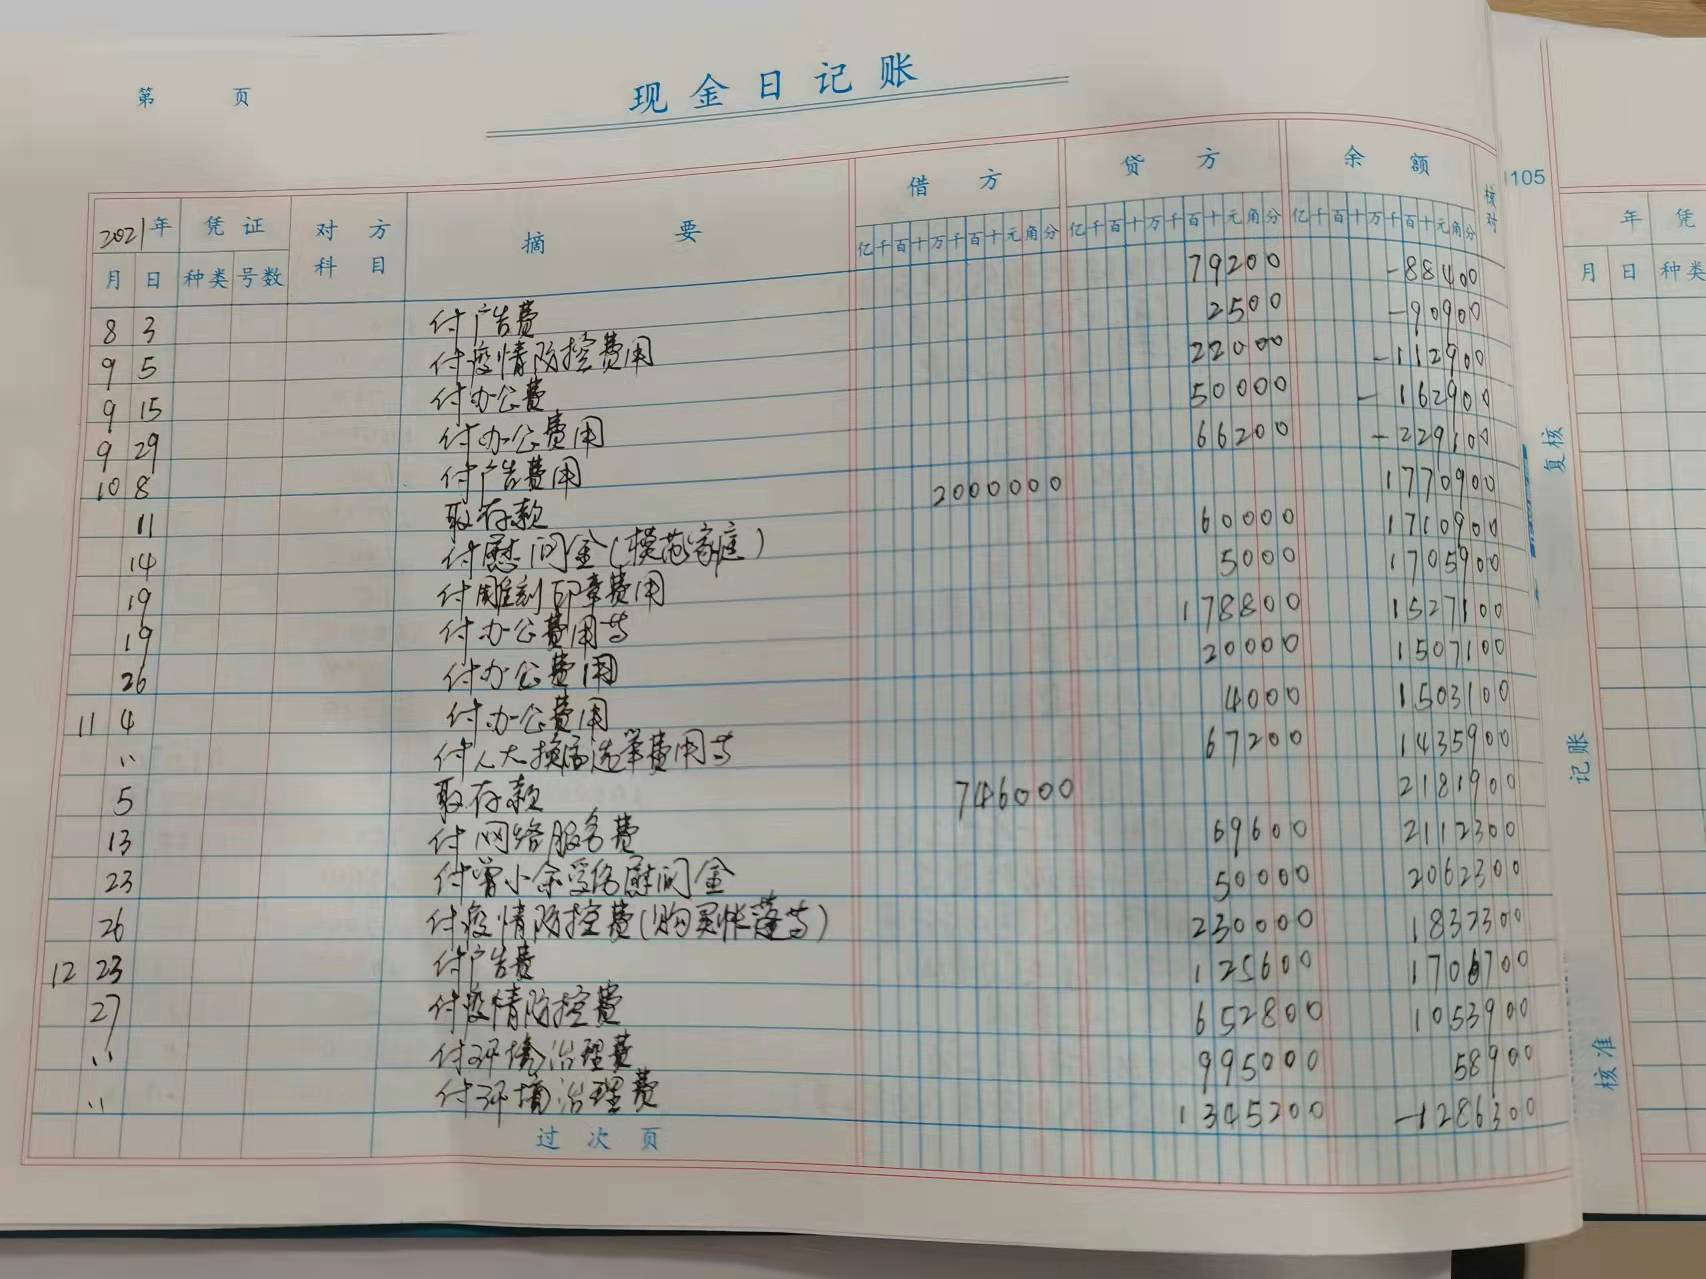 第 页
现金日记账
1105
2021年 凭证 对方科目 摘要 借方 贷方 余额 核对
月 日 种类 号数 亿千百十万千百十元角分 亿千百十万千百十元角分 亿千百十万千百十元角分
8 3 付广告费 79200 -88400
9 5 付疫情防控费用 2500 -90900
9 15 付办公费 22000 -112900
9 29 付办公费用 50000 -162900
10 8 付广告费用 66200 -229100
11 取存款 2000000 1770900
14 付慰问金(模范家庭) 60000 1710900
19 付雕刻印章费用 5000 1705900
19 付办公费用等 178800 1527100
26 付办公费用 20000 1507100
11 4 付办公费用 4000 1503100
〃 付人大换届选举费用等 67200 1435900
5 取存款 746000 2181900
13 付网络服务费 69600 2112300
23 付曾小余受伤慰问金 50000 2062300
26 付疫情防控费(购买帐篷等) 230000 1832300
12 23 付广告费 125600 1706700
27 付疫情防控费 652800 1053900
〃 付环境治理费 995000 58900
〃 付环境治理费 1345200 -1286300
过次页
复核
记账
核准
年 凭
月 日 种类